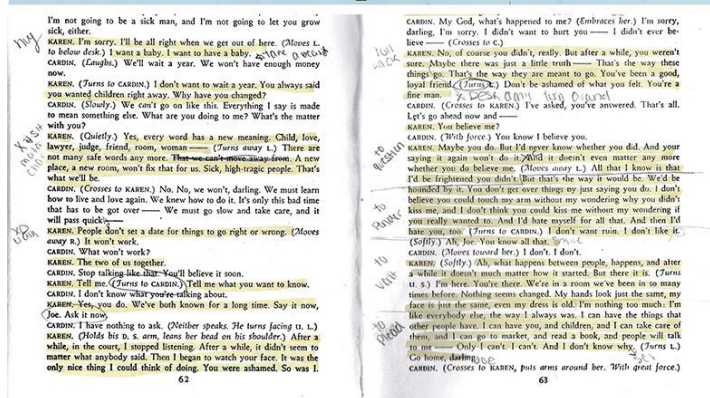 I'm not going to be a sick man, and I'm not going to let you grow
sick, either.
KAREN. I'm sorry. I'll be all right when we get out of here. (Moves L.
to below desk.) I want a baby. I want to have a baby.
CARDIN. (Laughs.) We'll wait a year. We won't have enough money
now.
KAREN. (Turns to CARDIN.) I don't want to wait a year. You always said
you wanted children right away. Why have you changed?
CARDIN. (Slowly.) We can't go on like this. Everything I say is made
to mean something else. What are you doing to me? What's the matter
with you?
KAREN. (Quietly.) Yes, every word has a new meaning. Child, love,
lawyer, judge, friend, room, woman —— (Turns away L.) There are
not many safe words any more. That we can't move away from. A new
place, a new room, won't fix that for us. Sick, high-tragic people. That's
what we'll be.
CARDIN. (Crosses to KAREN.) No. No, we won't, darling. We must learn
how to live and love again. We knew how to do it. It's only this bad time
that has to be got over —— We must go slow and take care, and it
will pass quick
KAREN. People don't set a date for things to go right or wrong. (Moves
away R.) It won't work.
CARDIN. What won't work?
KAREN. The two of us together.
CARDIN. Stop talking like that. You'll believe it soon.
KAREN. Tell me. (Turns to CARDIN.) Tell me what you want to know.
CARDIN. I don't know what you're talking about.
KAREN. Yes, you do. We've both known for a long time. Say it now,
Joe. Ask it now,
CARDIN. I have nothing to ask. (Neither speaks. He turns facing U. L.)
KAREN. (Holds his D. S. arm, leans her head on his shoulder.) After a
while, in the court, I stopped listening. After a while, it didn't seem to
matter what anybody said. Then I began to watch your face. It was the
only nice thing I could think of doing. You were ashamed. So was I.
62
CARDIN. My God, what's happened to me? (Embraces her.) I'm sorry,
darling, I'm sorry. I didn't want to hurt you —— I didn't ever be-
lieve —— (Crosses to C.)
KAREN. No, of course you didn't, really. But after a while, you weren't
sure. Maybe there was just a little truth —— That's the way these
things go. That's the way they are meant to go. You've been a good,
loyal friend. (Turns C.) Don't be ashamed of what you felt. You're a
fine man.
CARDIN. (Crosses to KAREN.) I've asked, you've answered. That's all.
Let's go ahead now and ——
KAREN. You believe me?
CARDIN. (With force.) You know I believe you.
KAREN. Maybe you do. But I'd never know whether you did. And your
saying it again won't do it. And it doesn't even matter any more
whether you do believe me. (Moves away L.) All that I know is that
I'd be frightened you didn't. But that's the way it would be. We'd be
hounded by it. You don't get over things by just saying you do. I don't
believe you could touch my arm without my wondering why you didn't
kiss me, and I don't think you could kiss me without my wondering if
you really wanted to. And I'd hate myself for all that. And then I'd
hate you, too. (Turns to CARDIN.) I don't want ruin. I don't like it.
(Softly.) Ah, Joe. You know all that.
CARDIN. (Moves toward her.) I don't. I don't.
KAREN. (Softly.) Ah, what happens between people, happens, and after
a while it doesn't much matter how it started. But there it is. (Turns
U. S.) I'm here. You're there. We're in a room we've been in so many
times before. Nothing seems changed. My hands look just the same, my
face is just the same, even my dress is old. I'm nothing too much: I'm
like everybody else, the way I always was. I can have the things that
other people have. I can have you, and children, and I can take care of
them, and I can go to market, and read a book, and people will talk
to me —— Only I can't. I can't. And I don't know why. (Turns L.)
Go home, darling
CARDIN. (Crosses to KAREN, puts arms around her. With great force.)
63
to
question
to
vent
to
plead